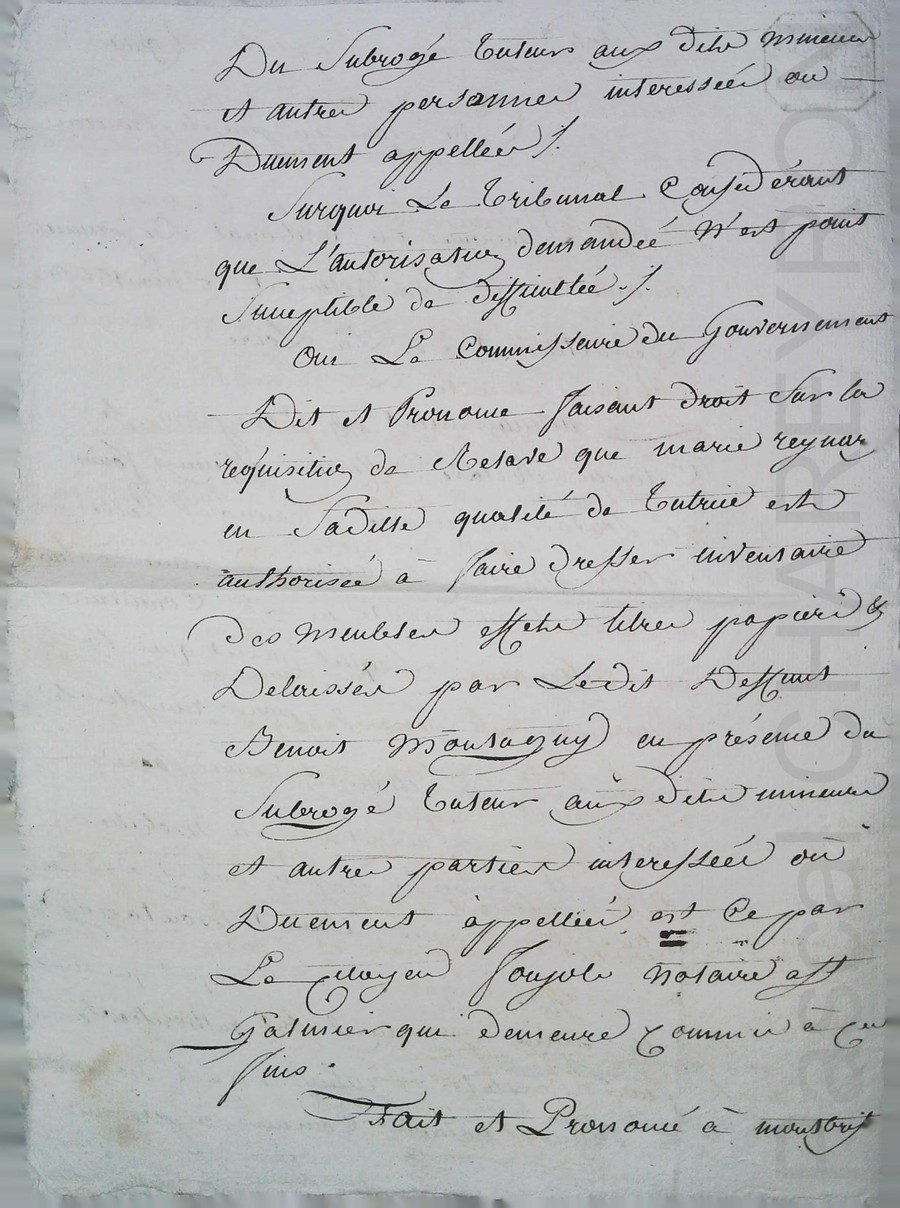 Du Subrogé tuteur aux dits mineurs
et autres personnes interessées ou
Duement appellées ./.
Surquoi Le tribunal Considérant
que L'autorisation demandée N'est point
Suceptible de difficultée ./.
Oui Le Commissaire du Gouvernement
Dit et Prononce faisant droit Sur la
requisition de que marie reynar
en Saditte qualité de tutrice est
authorisée à faire dresser inventaire
des Meubles effets titres papiers &
Delaissés par Ledit Deffunt
Benoit Montagny en présence du
Subrogé tuteur aux dits mineurs
et autres parties interessées où
Duement appellées, est Ce par
Le citoyen notaire a St
Galmier qui demeure Commis à Ces
fins.
Fait et Prononcé à montbrison
Pascal CHAREYRON